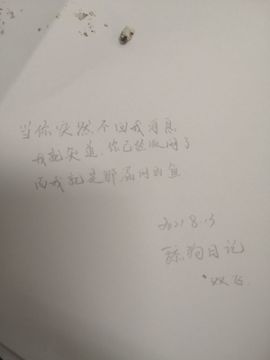 当你突然不回我消息
我就知道，你已经收网了
而我就是那漏网的鱼
2021.8.13
舔狗日记